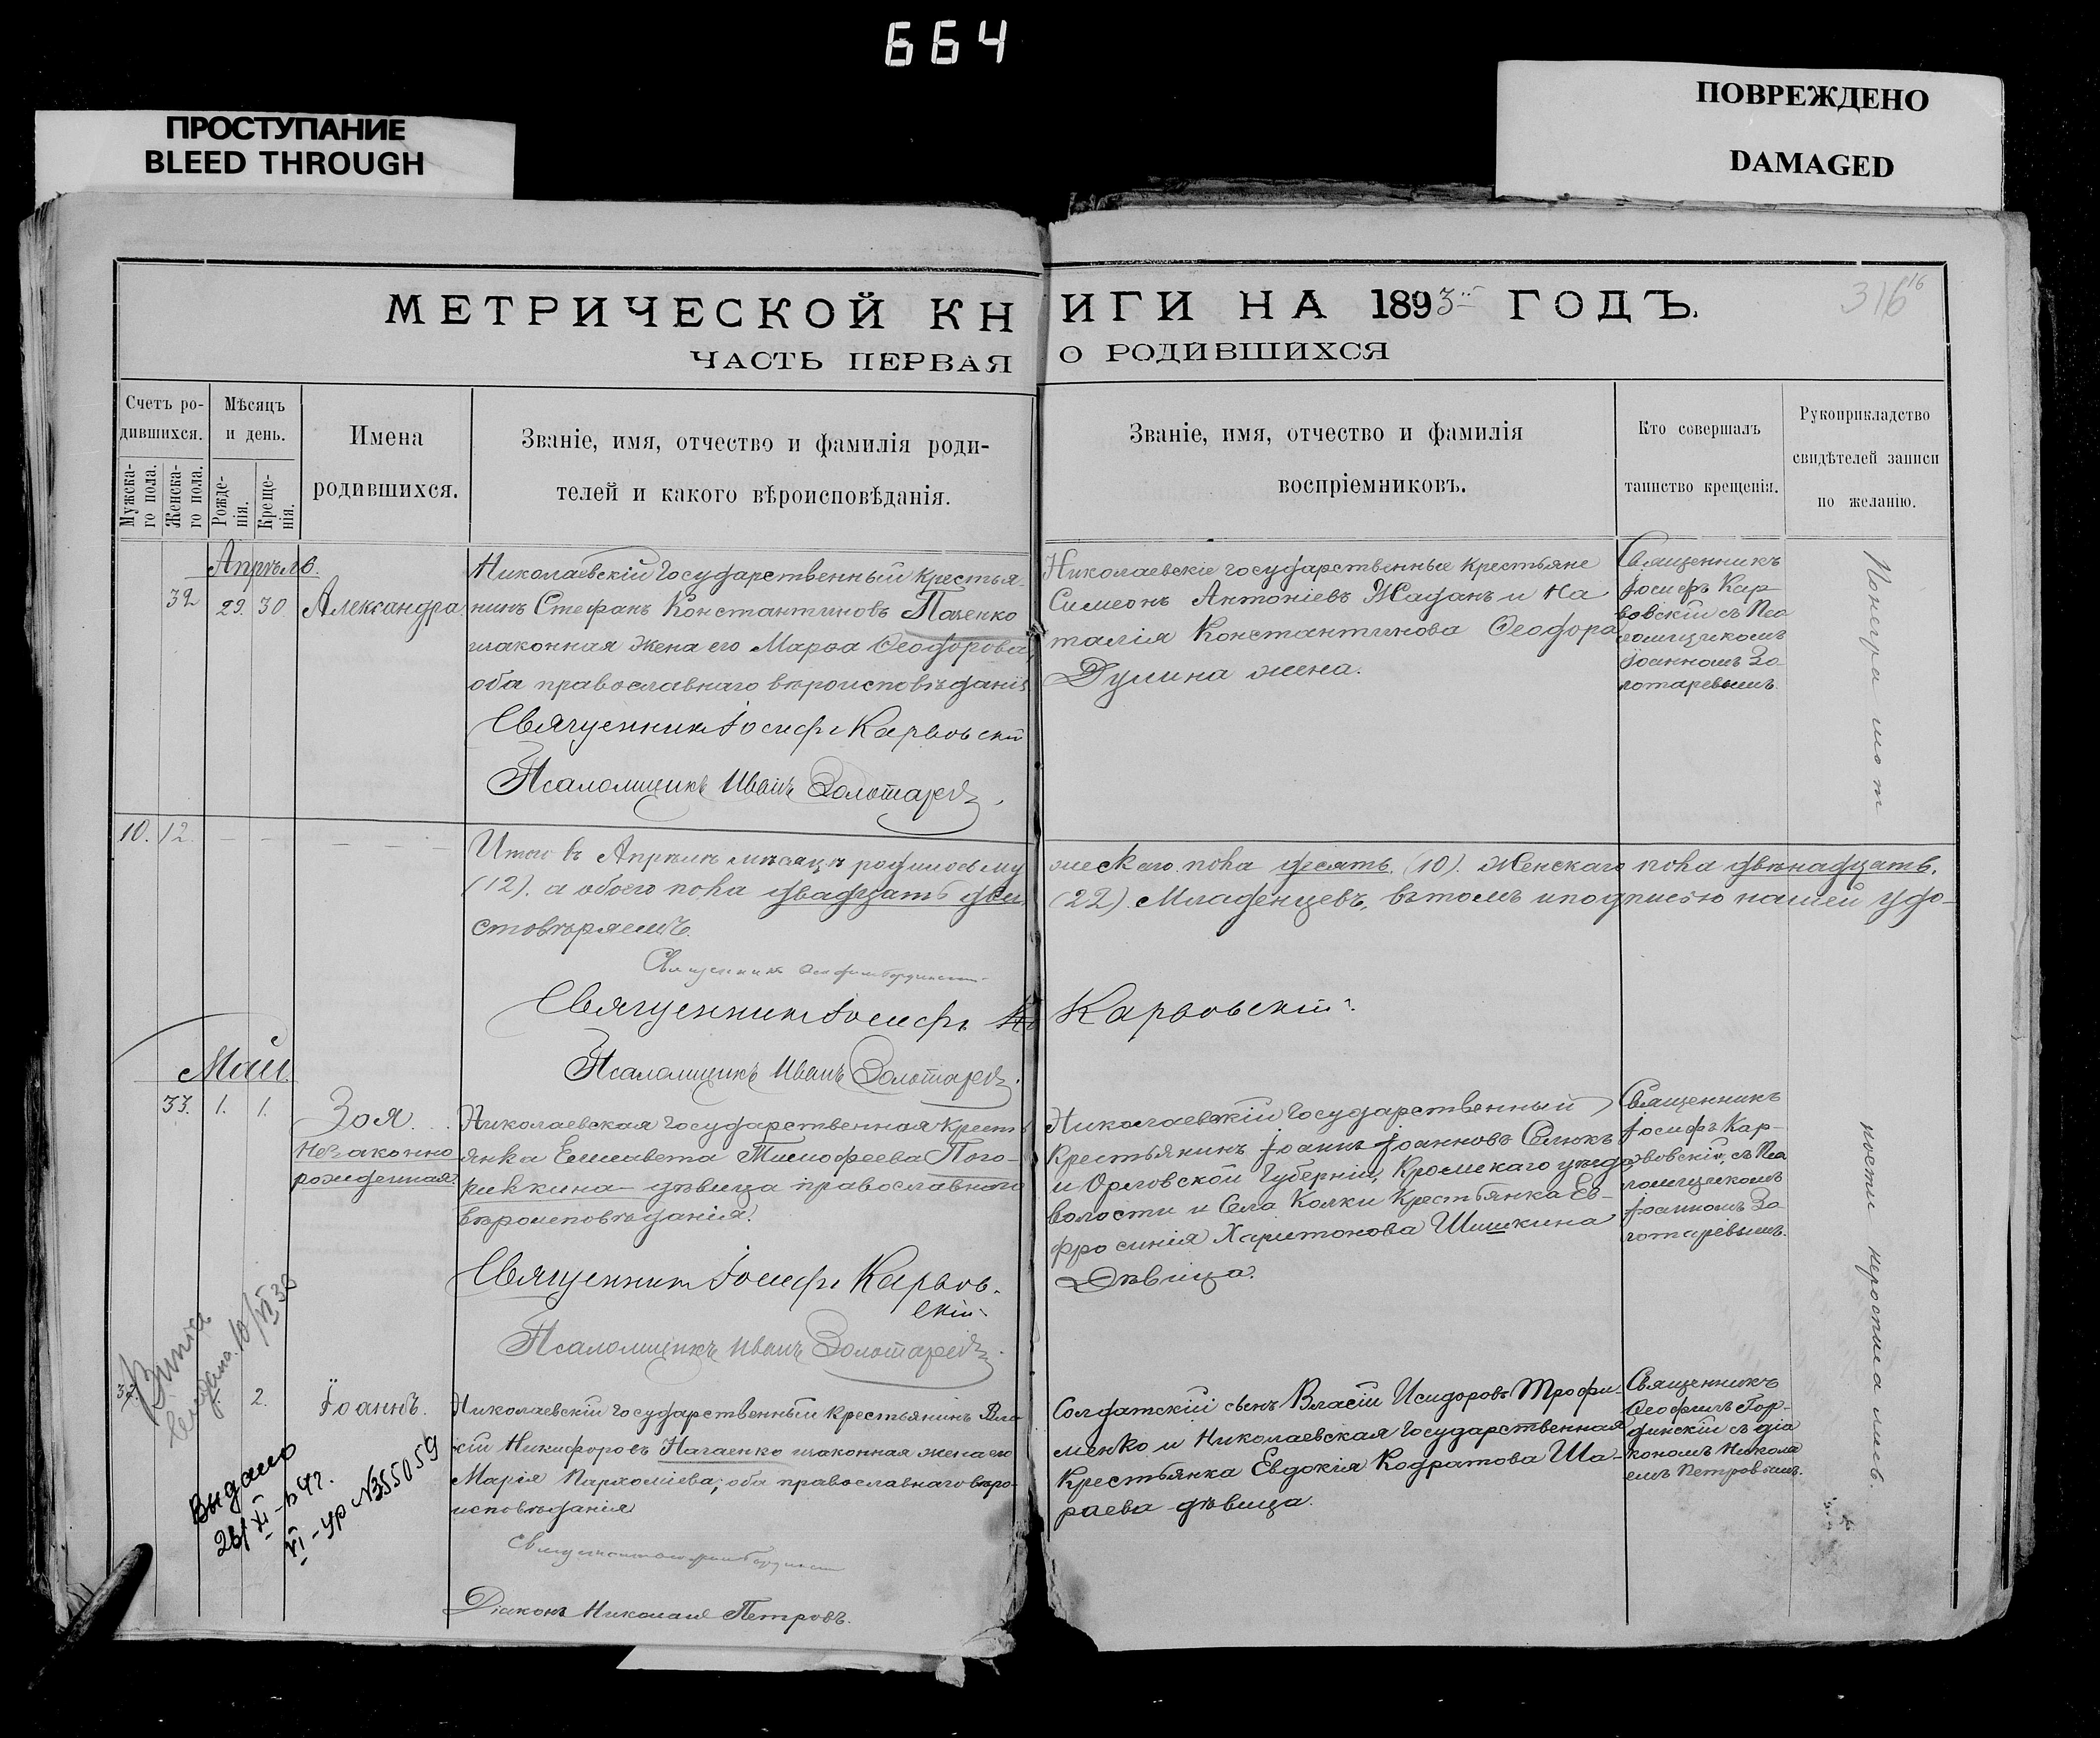 664
ПРОСТУПАНИЕ
BLEED THROUGH
ПОВРЕЖДЕНО
DAMAGED
МЕТРИЧЕСКОЙ КНИГИ НА 1893 ГОДЪ.
316
16
ЧАСТЬ ПЕРВАЯ О РОДИВШИХСЯ
Счетъ ро-
дившихся.
Мужска-
го пола.
Женска-
го пола.
Мѣсяцъ
и день.
Рожде-
нія.
Креще-
нія.
Имена
родившихся.
Званіе, имя, отчество и фамилія роди-
телей и какого вѣроисповѣданія.
Званіе, имя, отчество и фамилія
воспріемниковъ.
Кто совершалъ
таинство крещенія.
Рукоприкладство
свидѣтелей записи
по желанію.
Апрѣль.
32 29. 30 Александра
Николаевскій Государственный крестья-
нинъ Стефанъ Константиновъ Паченко
и законная жена его Марѳа Ѳеодорова,
оба православнаго вѣроисповѣданія
Священникъ Іосифъ Карвовскій
Псаломщикъ Иванъ Золотаревъ
Николаевскіе государственные крестьяне
Симеонъ Антоніевъ Жаданъ и На
талія Константинова Ѳеодора
Дулина жена.
Священникъ
Іосифъ Кар-
вовскій съ Пса
ломщикомъ
Іоанномъ Зо
лотаревымъ.
10. 12
Итого въ Апрѣлѣ мѣсяцѣ родилось му
жескаго пола десять (10). Женскаго пола двѣнадцать.
(12). а обоего пола двадцать два
(22) Младенцевъ, въ томъ и подписью нашей удо-
стовѣряемъ.
Священникъ
Священникъ Іосифъ Карвовскій
Псаломщикъ Иванъ Золотаревъ.
Май
33. 1. 1. Зоя
Незаконно
рожденная
Николаевская Государственная кресть
янка Елисавета Тимофеева Пого-
рилкина дѣвица православнаго
вѣроисповѣданія.
Священникъ Іосифъ Карвов-
скій
Псаломщикъ Иванъ Золотаревъ.
Николаевскій Государственный
Крестьянинъ Іоаннъ Іоанновъ Селюкъ
и Орловской Губерніи, Кромскаго уѣзда,
волости и Села Колки Крестьянка Ев-
фросинія Харитонова Шишкина
Дѣвица.
Священникъ
Іосифъ Кар-
вовскій, съ Пса
ломщикомъ
Іоанномъ Зо
лотаревымъ.
2. Іоаннъ.
Николаевскій Государственный крестьянинъ Вла
сій Никифоровъ Нагаенко и законная жена его
Марія Пархоміева; оба православнаго вѣро-
исповѣданія
Діаконъ Николай Петровъ.
Солдатскій сынъ Власій Исидоровъ Трофи-
менко и Николаевская Государственная
Крестьянка Евдокія Кодратова Ша-
раева дѣвица.
Священникъ
Ѳеофилъ Гор-
динскій съ діа
кономъ Никола
емъ Петровымъ.
Выдано
VI-УР №355059